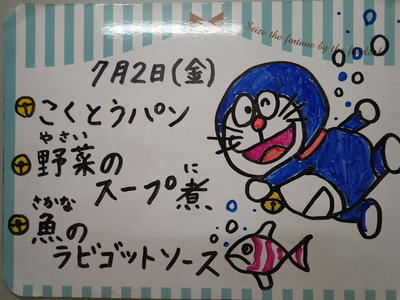 Seize the fortune by the forelock.
7月2日(金)
こくとうパン
やさい
野菜の
に
スープ煮
さかな
魚の
ラビゴットソース